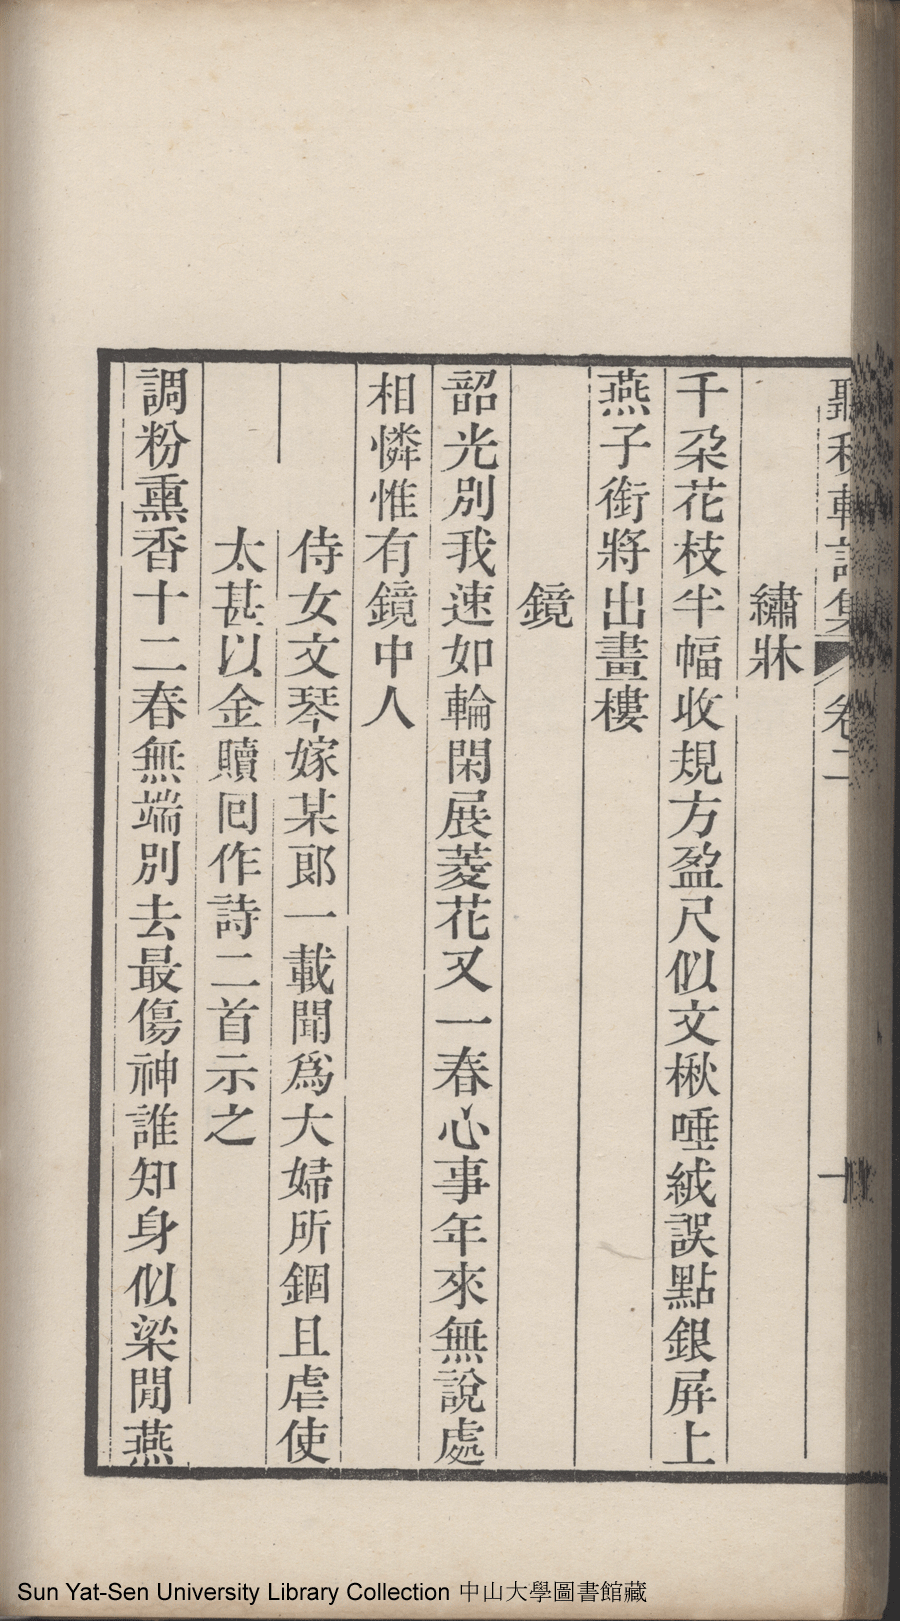 聽秋軒詩集 卷二
繡牀
千朶花枝半幅收規方盈尺似文楸唾絨誤點銀屛上
燕子銜將出畫樓
鏡
韶光別我速如輪閑展菱花又一春心事年來無說處
相憐惟有鏡中人
侍女文琴嫁某郞一載聞爲大婦所錮且虐使
太甚以金贖囘作詩二首示之
調粉熏香十二春無端別去最傷神誰知身似梁閒燕
Sun Yat-Sen University Library Collection 中山大學圖書館藏